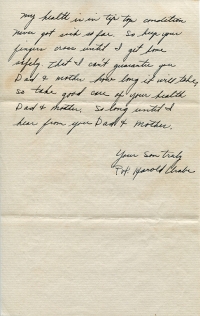 my health is in tip top condition
never got sick so far. So keep your
fingers cross until I get home
safely. that I can't guarantee you
Dad & mother how long it will take,
so take good care of your health
Dad & Mother. So long until I
hear from you Dad & Mother.
Your son truly
Pvt. Harold